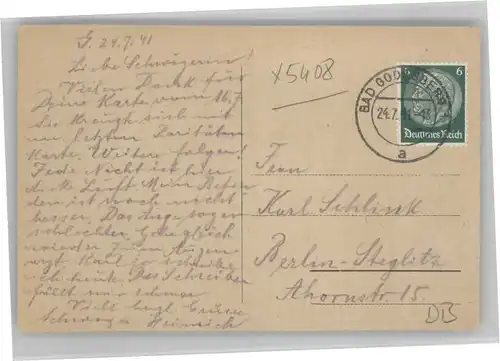 G. 24.7.41
Liebe Schwägerin!
Vielen Dank für
Deine Karte vom 16.7
sich mit
letzten Raritäten
Karte. Weitere folgen!
Jede Nacht ist hier
dicke Luft Mein Befin
den ist noch nicht
besser. Das Auge sogar
schlechter. Gehe gleich
wieder zum Augen-
arzt.
Das Schreiben
fällt mir schwer
Viele Grüsse
Schwager Heinrich
x5408
BAD GODESBERG
24.7.41
a
6
6
Deutsches Reich
Frau
Karl Schlink
Berlin-Steglitz
Ahornstr. 15.
DB